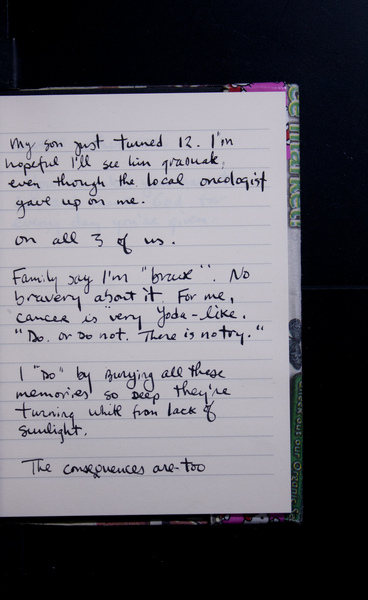 My son just turned 12. I'm
hopeful I'll see him graduate,
even though the local oncologist
gave up on me.
on all 3 of us.
Family say I'm "brave". No
bravery about it. For me,
cancer is very Yoda-like.
"Do. or Do not. There is no try."
I "Do" by Burying all these
memories so Deep they're
turning white from lack of
sunlight.
The consequences are too